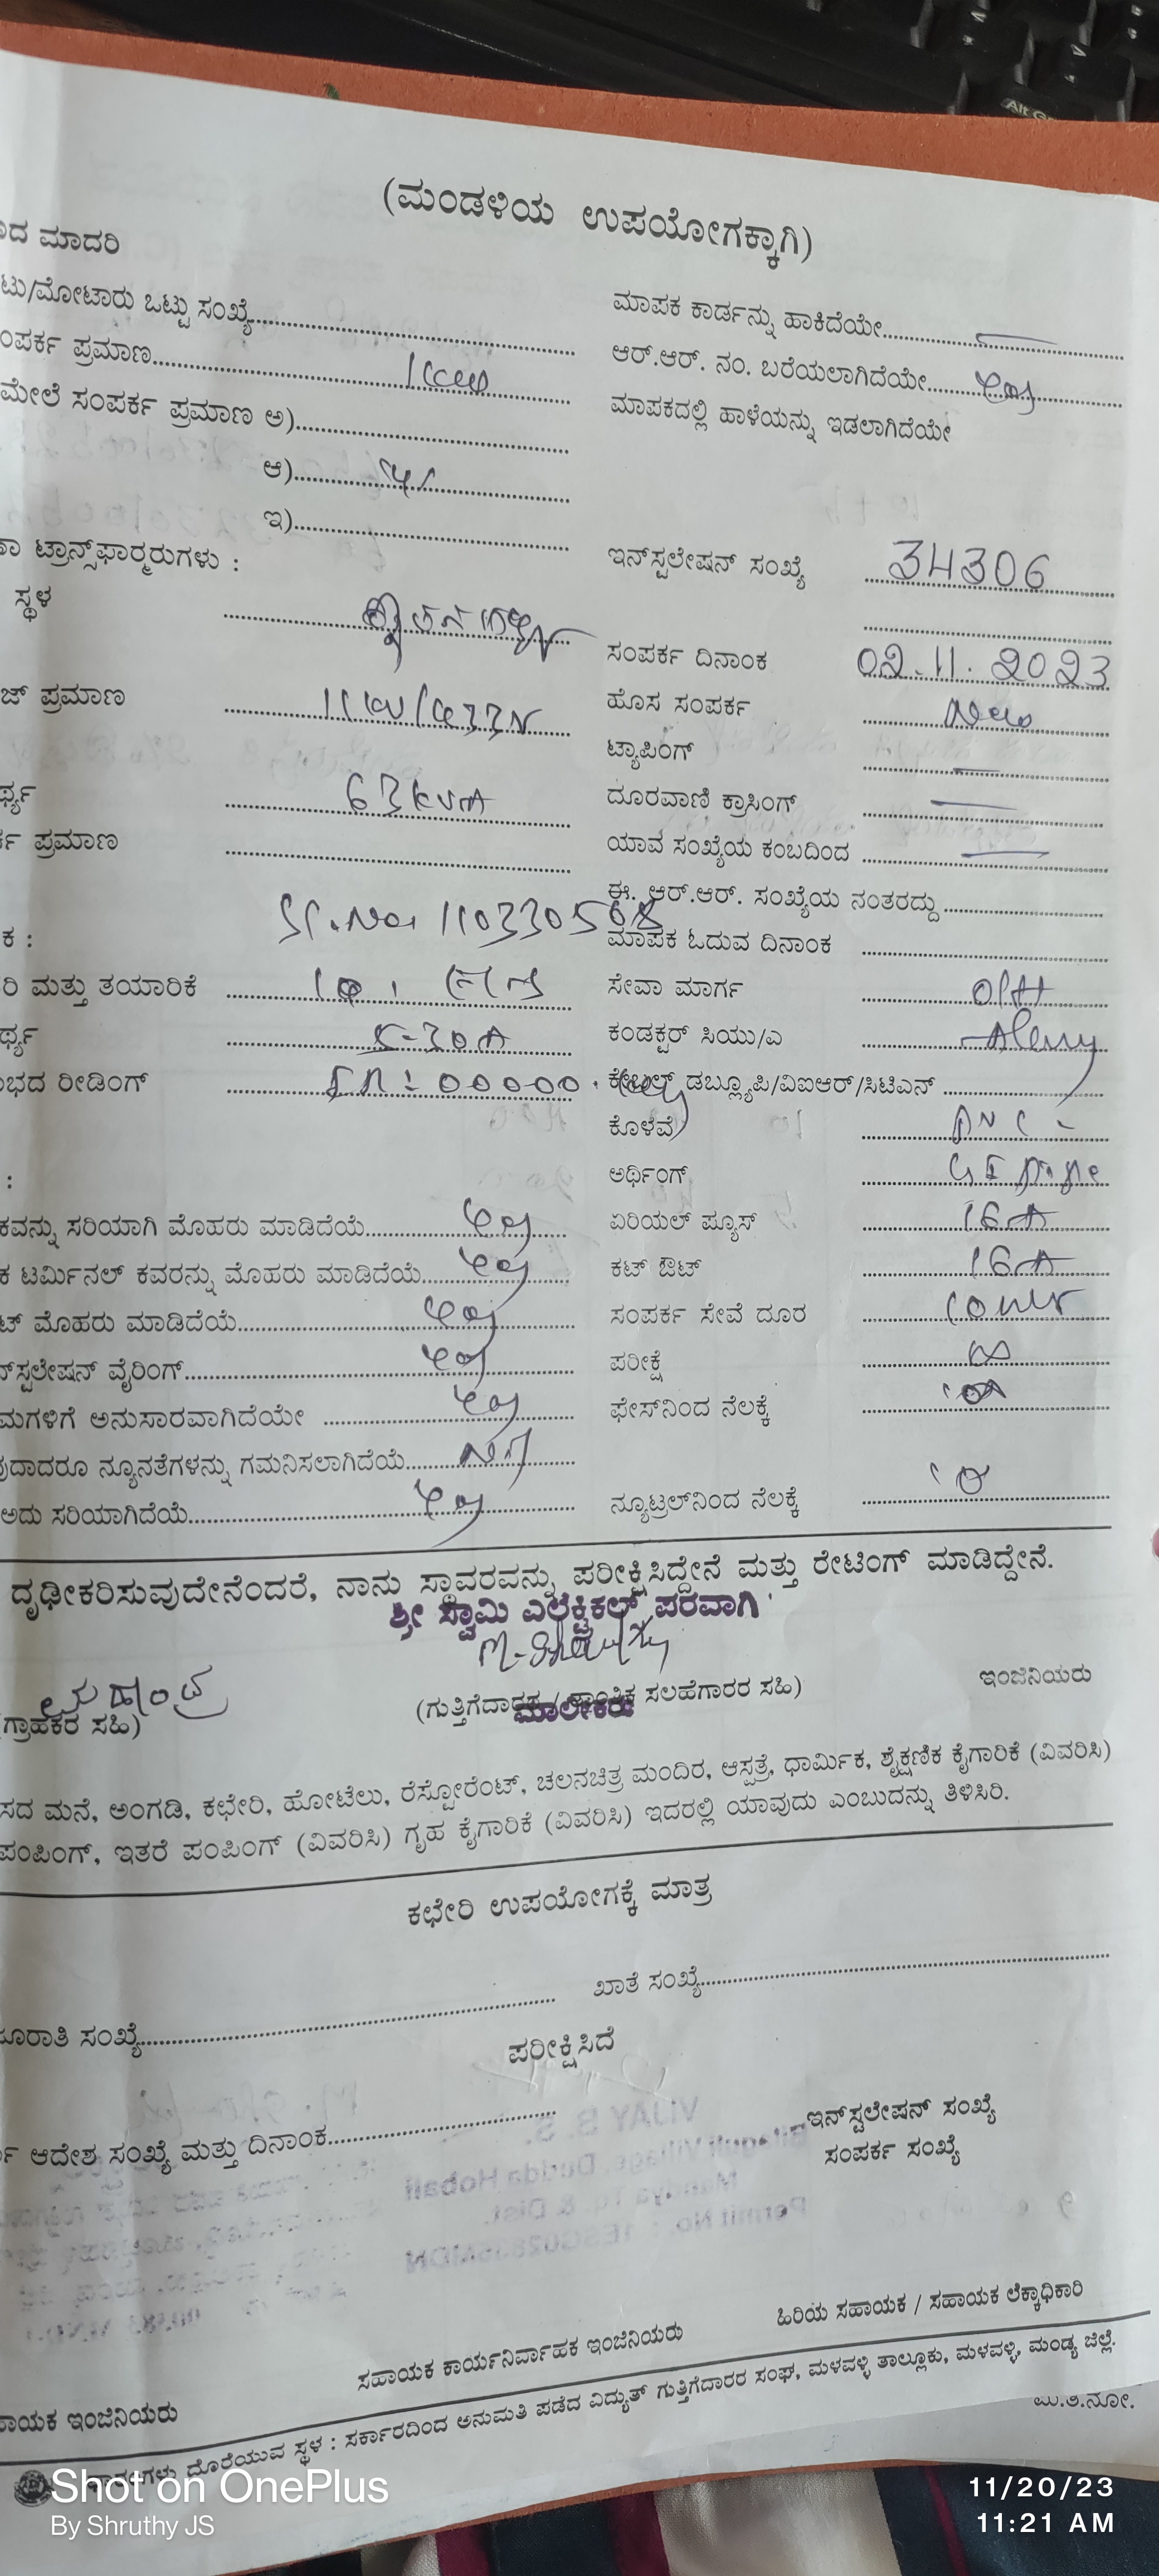 (ಮಂಡಳಿಯ ಉಪಯೋಗಕ್ಕಾಗಿ)
ಮಾದರಿ
ಟು/ಮೋಟಾರು ಒಟ್ಟು ಸಂಖ್ಯೆ
ಮಾಪಕ ಕಾರ್ಡನ್ನು ಹಾಕಿದೆಯೇ
ಂಪರ್ಕ ಪ್ರಮಾಣ
ಆರ್.ಆರ್. ನಂ. ಬರೆಯಲಾಗಿದೆಯೇ
ಮೇಲೆ ಸಂಪರ್ಕ ಪ್ರಮಾಣ ಅ)
ಮಾಪಕದಲ್ಲಿ ಹಾಳೆಯನ್ನು ಇಡಲಾಗಿದೆಯೇ
ಆ)
ಇ)
ಟ್ರಾನ್ಸ್‌ಫಾರ್ಮರುಗಳು :
ಇನ್‌ಸ್ಟಲೇಷನ್ ಸಂಖ್ಯೆ 34306
ಸ್ಥಳ
ಸಂಪರ್ಕ ದಿನಾಂಕ 02.11.2023
ಜ್ ಪ್ರಮಾಣ 11KV/433V
ಹೊಸ ಸಂಪರ್ಕ New
ಟ್ಯಾಪಿಂಗ್
ರ್ಥ್ಯ 63KVA
ದೂರವಾಣಿ ಕ್ರಾಸಿಂಗ್
ರ್ಕ ಪ್ರಮಾಣ
ಯಾವ ಸಂಖ್ಯೆಯ ಕಂಬದಿಂದ
Sl.No. 110330568
ಈ. ಆರ್.ಆರ್. ಸಂಖ್ಯೆಯ ನಂತರದ್ದು
ಕ :
ಮಾಪಕ ಓದುವ ದಿನಾಂಕ
ರಿ ಮತ್ತು ತಯಾರಿಕೆ
ಸೇವಾ ಮಾರ್ಗ O/H
ರ್ಥ್ಯ 5-30A
ಕಂಡಕ್ಟರ್ ಸಿಯು/ಎ
ಭದ ರೀಡಿಂಗ್ 00000.
ಕೇಬಲ್ ಡಬ್ಲ್ಯೂಪಿ/ವಿಐಆರ್/ಸಿಟಿಎನ್
ಕೊಳವೆ
:
ಅರ್ಥಿಂಗ್ GI Pipe
ಕವನ್ನು ಸರಿಯಾಗಿ ಮೊಹರು ಮಾಡಿದೆಯೆ yes
ಏರಿಯಲ್ ಪ್ಯೂಸ್ 16A
ಕ ಟರ್ಮಿನಲ್ ಕವರನ್ನು ಮೊಹರು ಮಾಡಿದೆಯೆ yes
ಕಟ್ ಔಟ್ 16A
ಟ್ ಮೊಹರು ಮಾಡಿದೆಯೆ yes
ಸಂಪರ್ಕ ಸೇವೆ ದೂರ 10 mtr
ನ್‌ಸ್ಟಲೇಷನ್ ವೈರಿಂಗ್ yes
ಪರೀಕ್ಷೆ
ಮಗಳಿಗೆ ಅನುಸಾರವಾಗಿದೆಯೇ yes
ಫೇಸ್‌ನಿಂದ ನೆಲಕ್ಕೆ
ವುದಾದರೂ ನ್ಯೂನತೆಗಳನ್ನು ಗಮನಿಸಲಾಗಿದೆಯೆ
ಅದು ಸರಿಯಾಗಿದೆಯೆ yes
ನ್ಯೂಟ್ರಲ್‌ನಿಂದ ನೆಲಕ್ಕೆ
ದೃಢೀಕರಿಸುವುದೇನೆಂದರೆ, ನಾನು ಸ್ಥಾವರವನ್ನು ಪರೀಕ್ಷಿಸಿದ್ದೇನೆ ಮತ್ತು ರೇಟಿಂಗ್ ಮಾಡಿದ್ದೇನೆ.
ಶ್ರೀ ಸ್ವಾಮಿ ಎಲೆಕ್ಟ್ರಿಕಲ್ಸ್ ಪರವಾಗಿ
(ಗುತ್ತಿಗೆದಾರರ / ತಾಂತ್ರಿಕ ಸಲಹೆಗಾರರ ಸಹಿ)
ಇಂಜಿನಿಯರು
ಮಾಲೀಕರು
ಗ್ರಾಹಕರ ಸಹಿ)
ಸದ ಮನೆ, ಅಂಗಡಿ, ಕಛೇರಿ, ಹೋಟೆಲು, ರೆಸ್ಟೋರೆಂಟ್, ಚಲನಚಿತ್ರ ಮಂದಿರ, ಆಸ್ಪತ್ರೆ, ಧಾರ್ಮಿಕ, ಶೈಕ್ಷಣಿಕ ಕೈಗಾರಿಕೆ (ವಿವರಿಸಿ)
ಪಂಪಿಂಗ್, ಇತರೆ ಪಂಪಿಂಗ್ (ವಿವರಿಸಿ) ಗೃಹ ಕೈಗಾರಿಕೆ (ವಿವರಿಸಿ) ಇದರಲ್ಲಿ ಯಾವುದು ಎಂಬುದನ್ನು ತಿಳಿಸಿರಿ.
ಕಛೇರಿ ಉಪಯೋಗಕ್ಕೆ ಮಾತ್ರ
ೂರಾತಿ ಸಂಖ್ಯೆ
ಖಾತೆ ಸಂಖ್ಯೆ
ಪರೀಕ್ಷಿಸಿದೆ
ಆದೇಶ ಸಂಖ್ಯೆ ಮತ್ತು ದಿನಾಂಕ
ಇನ್‌ಸ್ಟಲೇಷನ್ ಸಂಖ್ಯೆ
ಸಂಪರ್ಕ ಸಂಖ್ಯೆ
ಾಯಕ ಇಂಜಿನಿಯರು
ಸಹಾಯಕ ಕಾರ್ಯನಿರ್ವಾಹಕ ಇಂಜಿನಿಯರು
ಹಿರಿಯ ಸಹಾಯಕ / ಸಹಾಯಕ ಲೆಕ್ಕಾಧಿಕಾರಿ
ದೊರೆಯುವ ಸ್ಥಳ : ಸರ್ಕಾರದಿಂದ ಅನುಮತಿ ಪಡೆದ ವಿದ್ಯುತ್ ಗುತ್ತಿಗೆದಾರರ ಸಂಘ, ಮಳವಳ್ಳಿ ತಾಲ್ಲೂಕು, ಮಳವಳ್ಳಿ, ಮಂಡ್ಯ ಜಿಲ್ಲೆ.
Shot on OnePlus
By Shruthy JS
11/20/23
11:21 AM